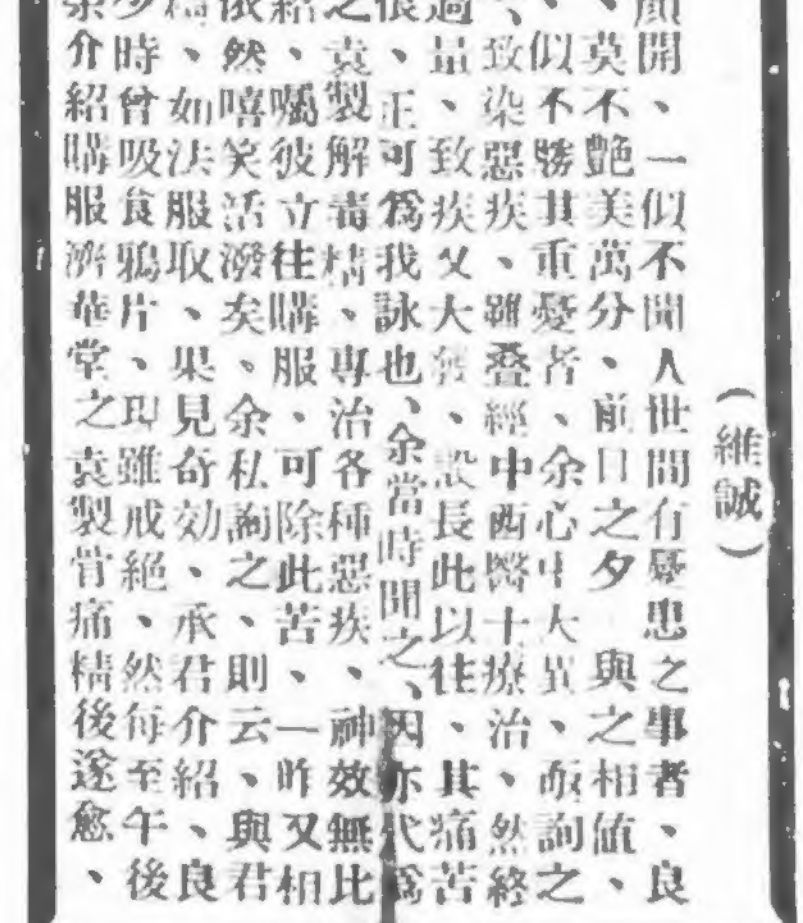 （維誠）
顏開、一似不聞人世間有憂患之事者、良
、莫不艷美萬分、前日之夕 與之相值、
、似不勝其重憂者、余心中大異、亟詢之
、致染惡疾、雖叠經中西醫士療治、然終
過量、致疾又大發、設長此以往、其痛苦
恨、正可爲我詠也、余當時聞之、因亦代爲
之袁製解毒精、專治各種惡疾、神效無比
紹、囑彼立往購服、可除此苦、一昨又相
依然嘻笑活潑矣、余私詢之、則云、與君
、如法服取、果見奇効、承君介紹、良
少時曾吸食鴉片、現雖戒絕、然每至午後
余介紹購服濟華堂之袁製胃痛精後遂愈、